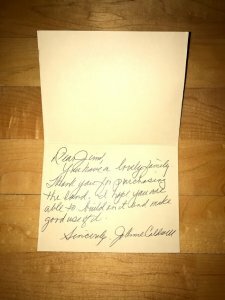 Dear Jim,
You have a lovely family
Thank you for purchasing
the land. I hope you are
able to build on it and make
good use of it.
Sincerely